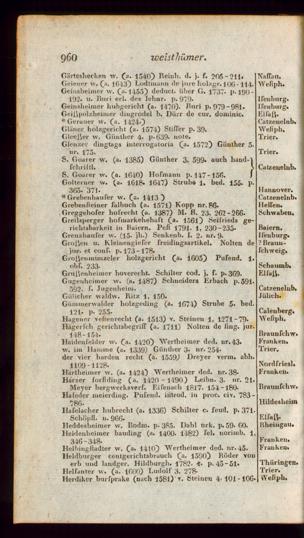 960 weisthümer.
Gärteshecken w. (a. 1540) Reinh. d. j. f. 205-211. Nassau.
Geiener w. (a. 1643) Lodtmann de jure holzgr. 106-114. Westph.
Geinsheimer w. (a. 1455) deduct. über G. 1737. p. 190-
192. u. Buri erl. des lehnr. p. 979. Isenburg.
Geinsheimer hubgericht (a. 1470). Buri p. 979-981. Isenburg.
Geißpolzheimer dingrodel b. Dürr de cur. domin. Elsaß.
*Gerauer w. (a. 1424.) Catzenelnb.
Gläner holzgericht (a. 1574) Stisser p. 39. Westph.
Gleesser w. Günther 4. p. 639. note. Trier.
Glenzer dingtags interrogatoria (a. 1572) Günther 5.
nr. 175. Trier.
S. Goarer w. (a. 1385) Günther 3, 599. auch hand-
schrift. Catzenelnb.
S. Goarer w. (a. 1640) Hofmann p. 147-156.
Golterner w. (a. 1618-1647) Strube 1. bed. 155. p.
365. 371. Hannover.
*Grebenhauser w. (a. 1413) Catzenelnb.
Grebensteiner salbuch (a. 1571) Kopp nr. 86. Hessen.
Greggehofer hofrecht (a. 1387) M. B. 23. 262-266. Schwaben.
richtsbarkeit in Baiern. Pest 1791. 1, 230-235. Baiern.
Grenzhauser w. (15. jh.) Senkenb. 1. 2. nr. 9. Isenburg.
Großen u. Kleinengiefer freidingsartikel. Nolten de ?Braun-
jur. et conf. p. 173-178. schweig.
Großenmunzeler holzgericht (a. 1605) Pufend. 1.
obs. 233. Schaumb.
Grußenheimer hoverecht. Schilter cod. j. f. p. 369. Elsaß.
Gugenheimer w. (a. 1487) Schneiders Erbach p. 591.
592. f. Jugenheim. Catzenelnb.
Gülicher waldw. Ritz 1, 150. Jülich.
Gummerwalder holzgding (a. 1674) Strube 5. bed.
121. p. 255. Calenberg.
Hagener vestenrecht (a. 1513) v. Steinen 1, 1271-79. Westph.
Hägersch gerichtsbegriff (a. 1711) Nolten de sing. jur.
148-154. Braunschw.
Haidenfelder w. (a. 1420) Wertheimer ded. nr. 43. Franken.
w. im Hamme (a. 1339) Günther 3. nr. 254. Trier.
der vier harden recht (a. 1559) Dreyer verm. abh.
1109-1128. Nordfriesl.
Hartheimer w. (a. 1424) Wertheimer ded. nr. 38. Franken.
Harzer forstding (a. 1420-1490) Leibn. 3. nr. 21.
Meyer bergwerksverf. Eisenach 1817. 154-180. Braunschw.
Haseder meierding. Pufend. introd. in proc. civ. 783-
786. Hildesheim
Haselacher hubrecht (a. 1336) Schilter c. feud. p. 371.
Schöpfl. n. 966. Elsaß.
Heddesheimer w. Bodm. p. 385. Dahl urk. p. 59. 60. Rheingau.
Heidenheimer bauding (a. 1400. 1482) fel. norimb. 1.
346-348. Franken.
Helbingstadter w. (a. 1410) Wertheimer ded. nr. 45. Franken.
Heldburger centgerichtsbrauch (a. 1590) Röder von
erb und landger. Hildburgh. 1782. 4. p. 45-51. Thüringen.
Helfanter w. (a. 1600) Ludolf 3, 278. Trier.
Herdiker hursprake (nach 1581) v. Steinen 4. 101-106. Westph.